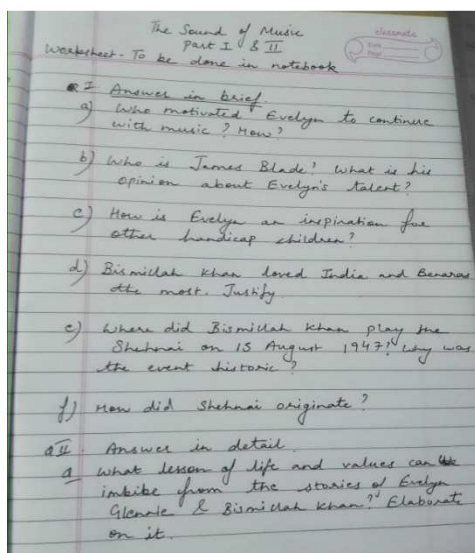 The Sound of Music
Part I & II
classmate
Date
Page
Worksheet - To be done in notebook
Q I Answer in brief.
a) Who motivated Evelyn to continue
with music? How?
b) Who is James Blade? What is his
opinion about Evelyn's talent?
c) How is Evelyn an inspiration for
other handicap children?
d) Bismillah Khan loved India and Benaras
the most. Justify.
e) Where did Bismillah Khan play the
Shehnai on 15 August 1947? Why was
the event historic?
f) How did Shehnai originate?
Q II. Answer in detail.
a What lesson of life and values can we
imbibe from the stories of Evelyn
Glennie & Bismillah Khan? Elaborate
on it.